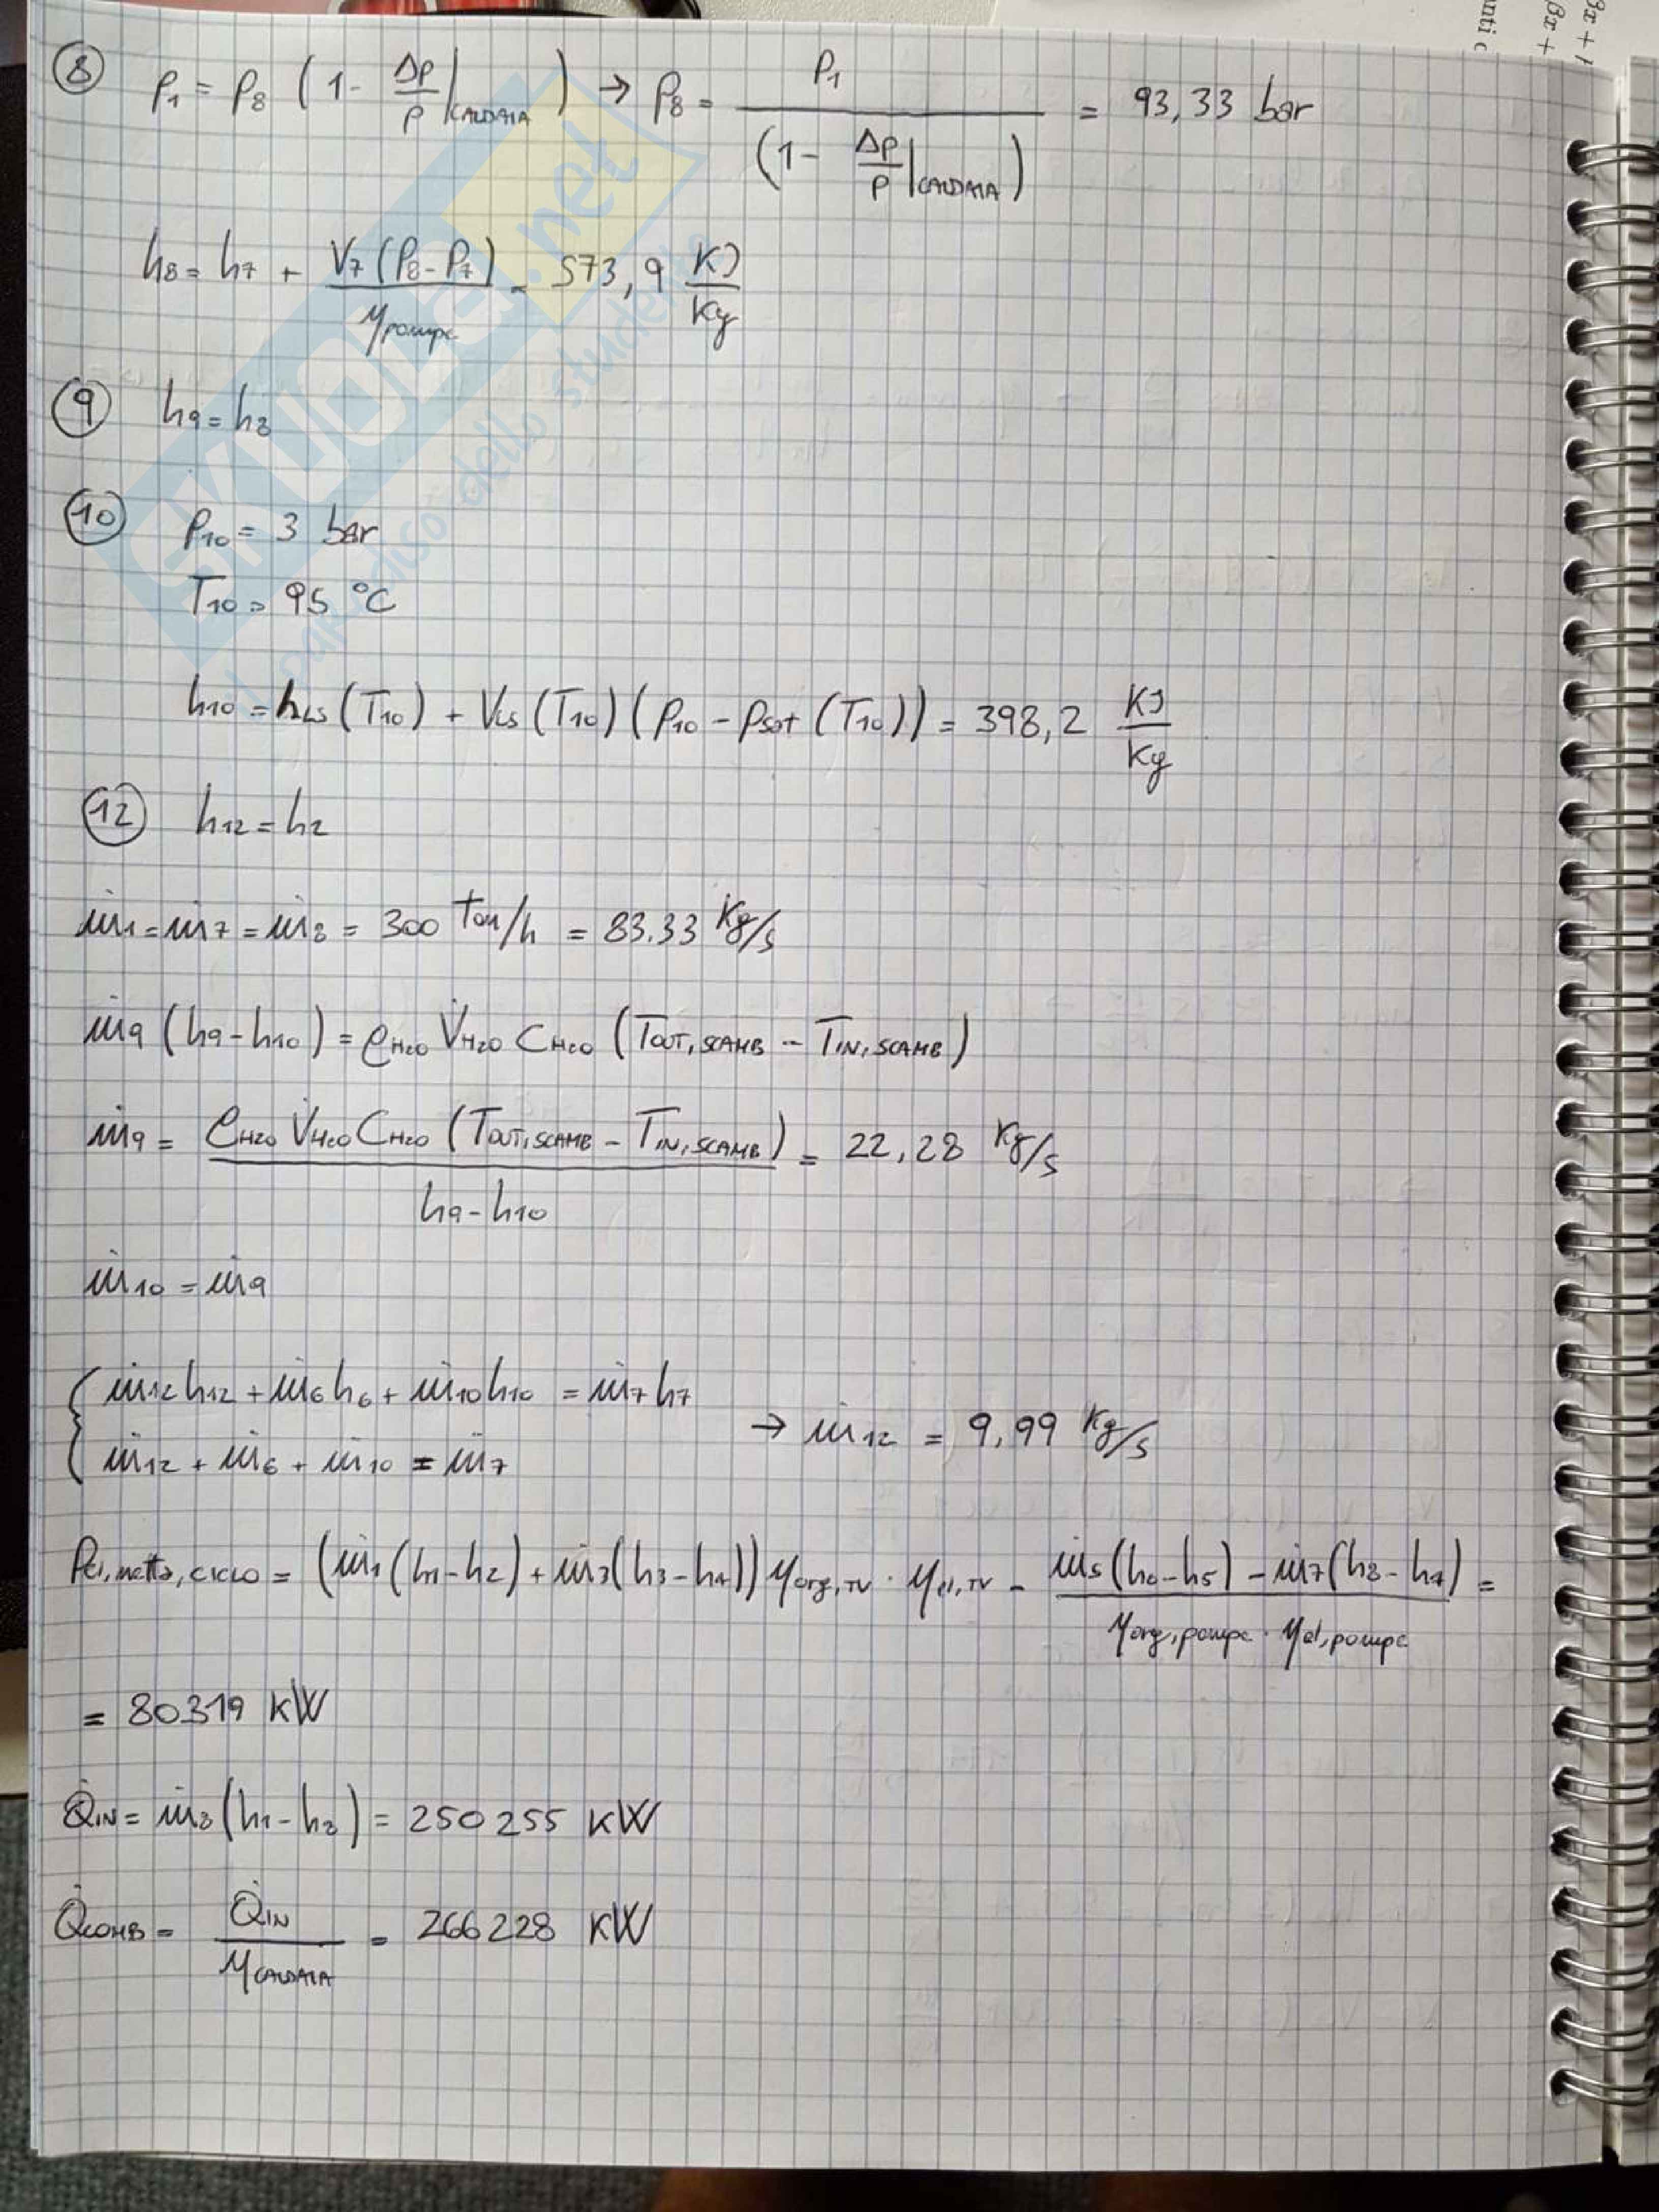 βx + 1
βx +
nti c
⑧ P₁ = P₈ (1 - Δp/p |CALDAIA) → P₈ = P₁ / (1 - Δp/p |CALDAIA) = 93,33 bar
h₈ = h₇ + V₇ (P₈ - P₇) / ηpompe = 573,9 KJ/Kg
⑨ h₉ = h₃
⑩ P₁₀ = 3 bar
T₁₀ = 95 °C
h₁₀ = hLS (T₁₀) + VLS (T₁₀) (P₁₀ - Psat (T₁₀)) = 398,2 KJ/Kg
⑫ h₁₂ = h₂
ṁ₁ = ṁ₇ = ṁ₈ = 300 Ton/h = 83.33 Kg/s
ṁ₉ (h₉ - h₁₀) = ρH₂O V̇H₂O CH₂O (TOUT,SCAMB - TIN,SCAMB)
ṁ₉ = ρH₂O V̇H₂O CH₂O (TOUT,SCAMB - TIN,SCAMB) / h₉ - h₁₀ = 22,28 Kg/s
ṁ₁₀ = ṁ₉
{ ṁ₁₂h₁₂ + ṁ₆h₆ + ṁ₁₀h₁₀ = ṁ₇h₇
ṁ₁₂ + ṁ₆ + ṁ₁₀ = ṁ₇ → ṁ₁₂ = 9,99 Kg/s
Pel,netta,CICLO = (ṁ₁(h₁-h₂) + ṁ₃(h₃-h₄)) ηorg,TV · ηel,TV - ṁ₅(h₆-h₅) - ṁ₇(h₈-h₇) / ηorg,pompe · ηel,pompe =
= 80319 KW
Q̇IN = ṁ₈ (h₁ - h₈) = 250255 KW
Q̇COMB = Q̇IN / ηCALDAIA = 266228 KW
SKUOLA.net
il paradiso dello studente